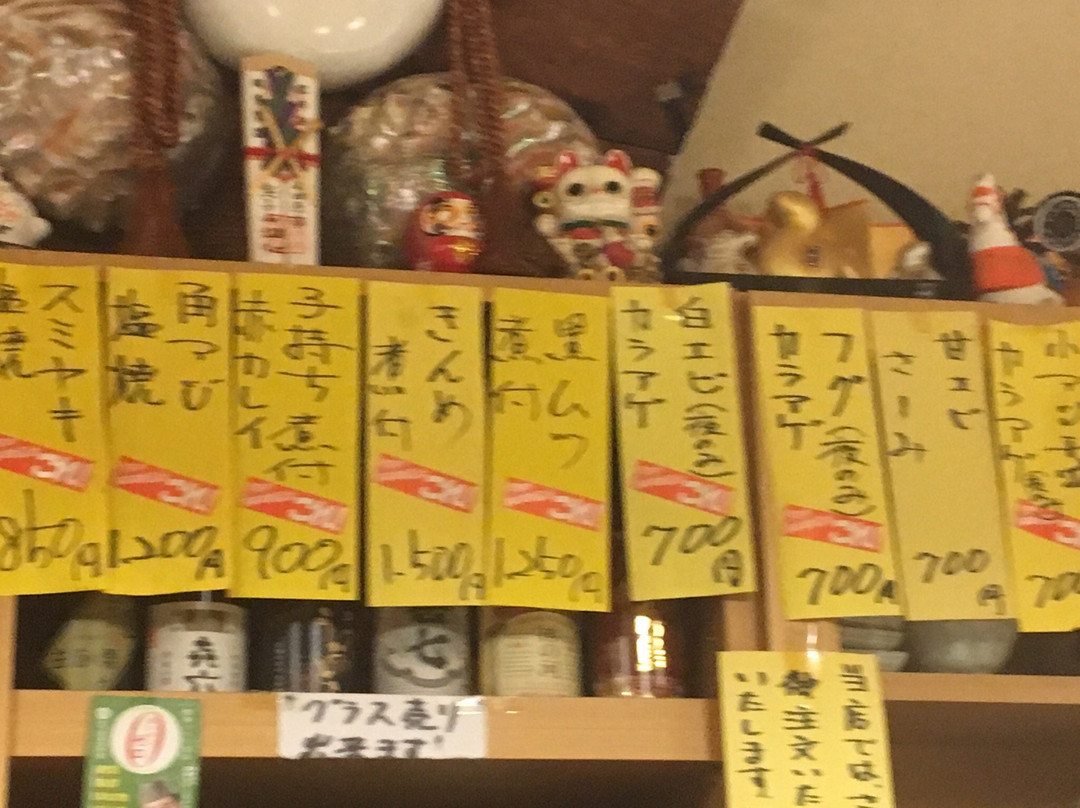 スミヤキ
塩焼
850円
角つび
塩焼
1,200円
子持ち煮付
赤カレイ
900円
きんめ
煮付
1,500円
黒ムツ
煮付
1,250円
白エビ(夜のみ)
カラアゲ
700円
フグ(夜のみ)
カラアゲ
700円
甘エビ
さしみ
700円
カラアゲ
700
グラス売り
出来ます!
当店では、
御注文いた
いたします!